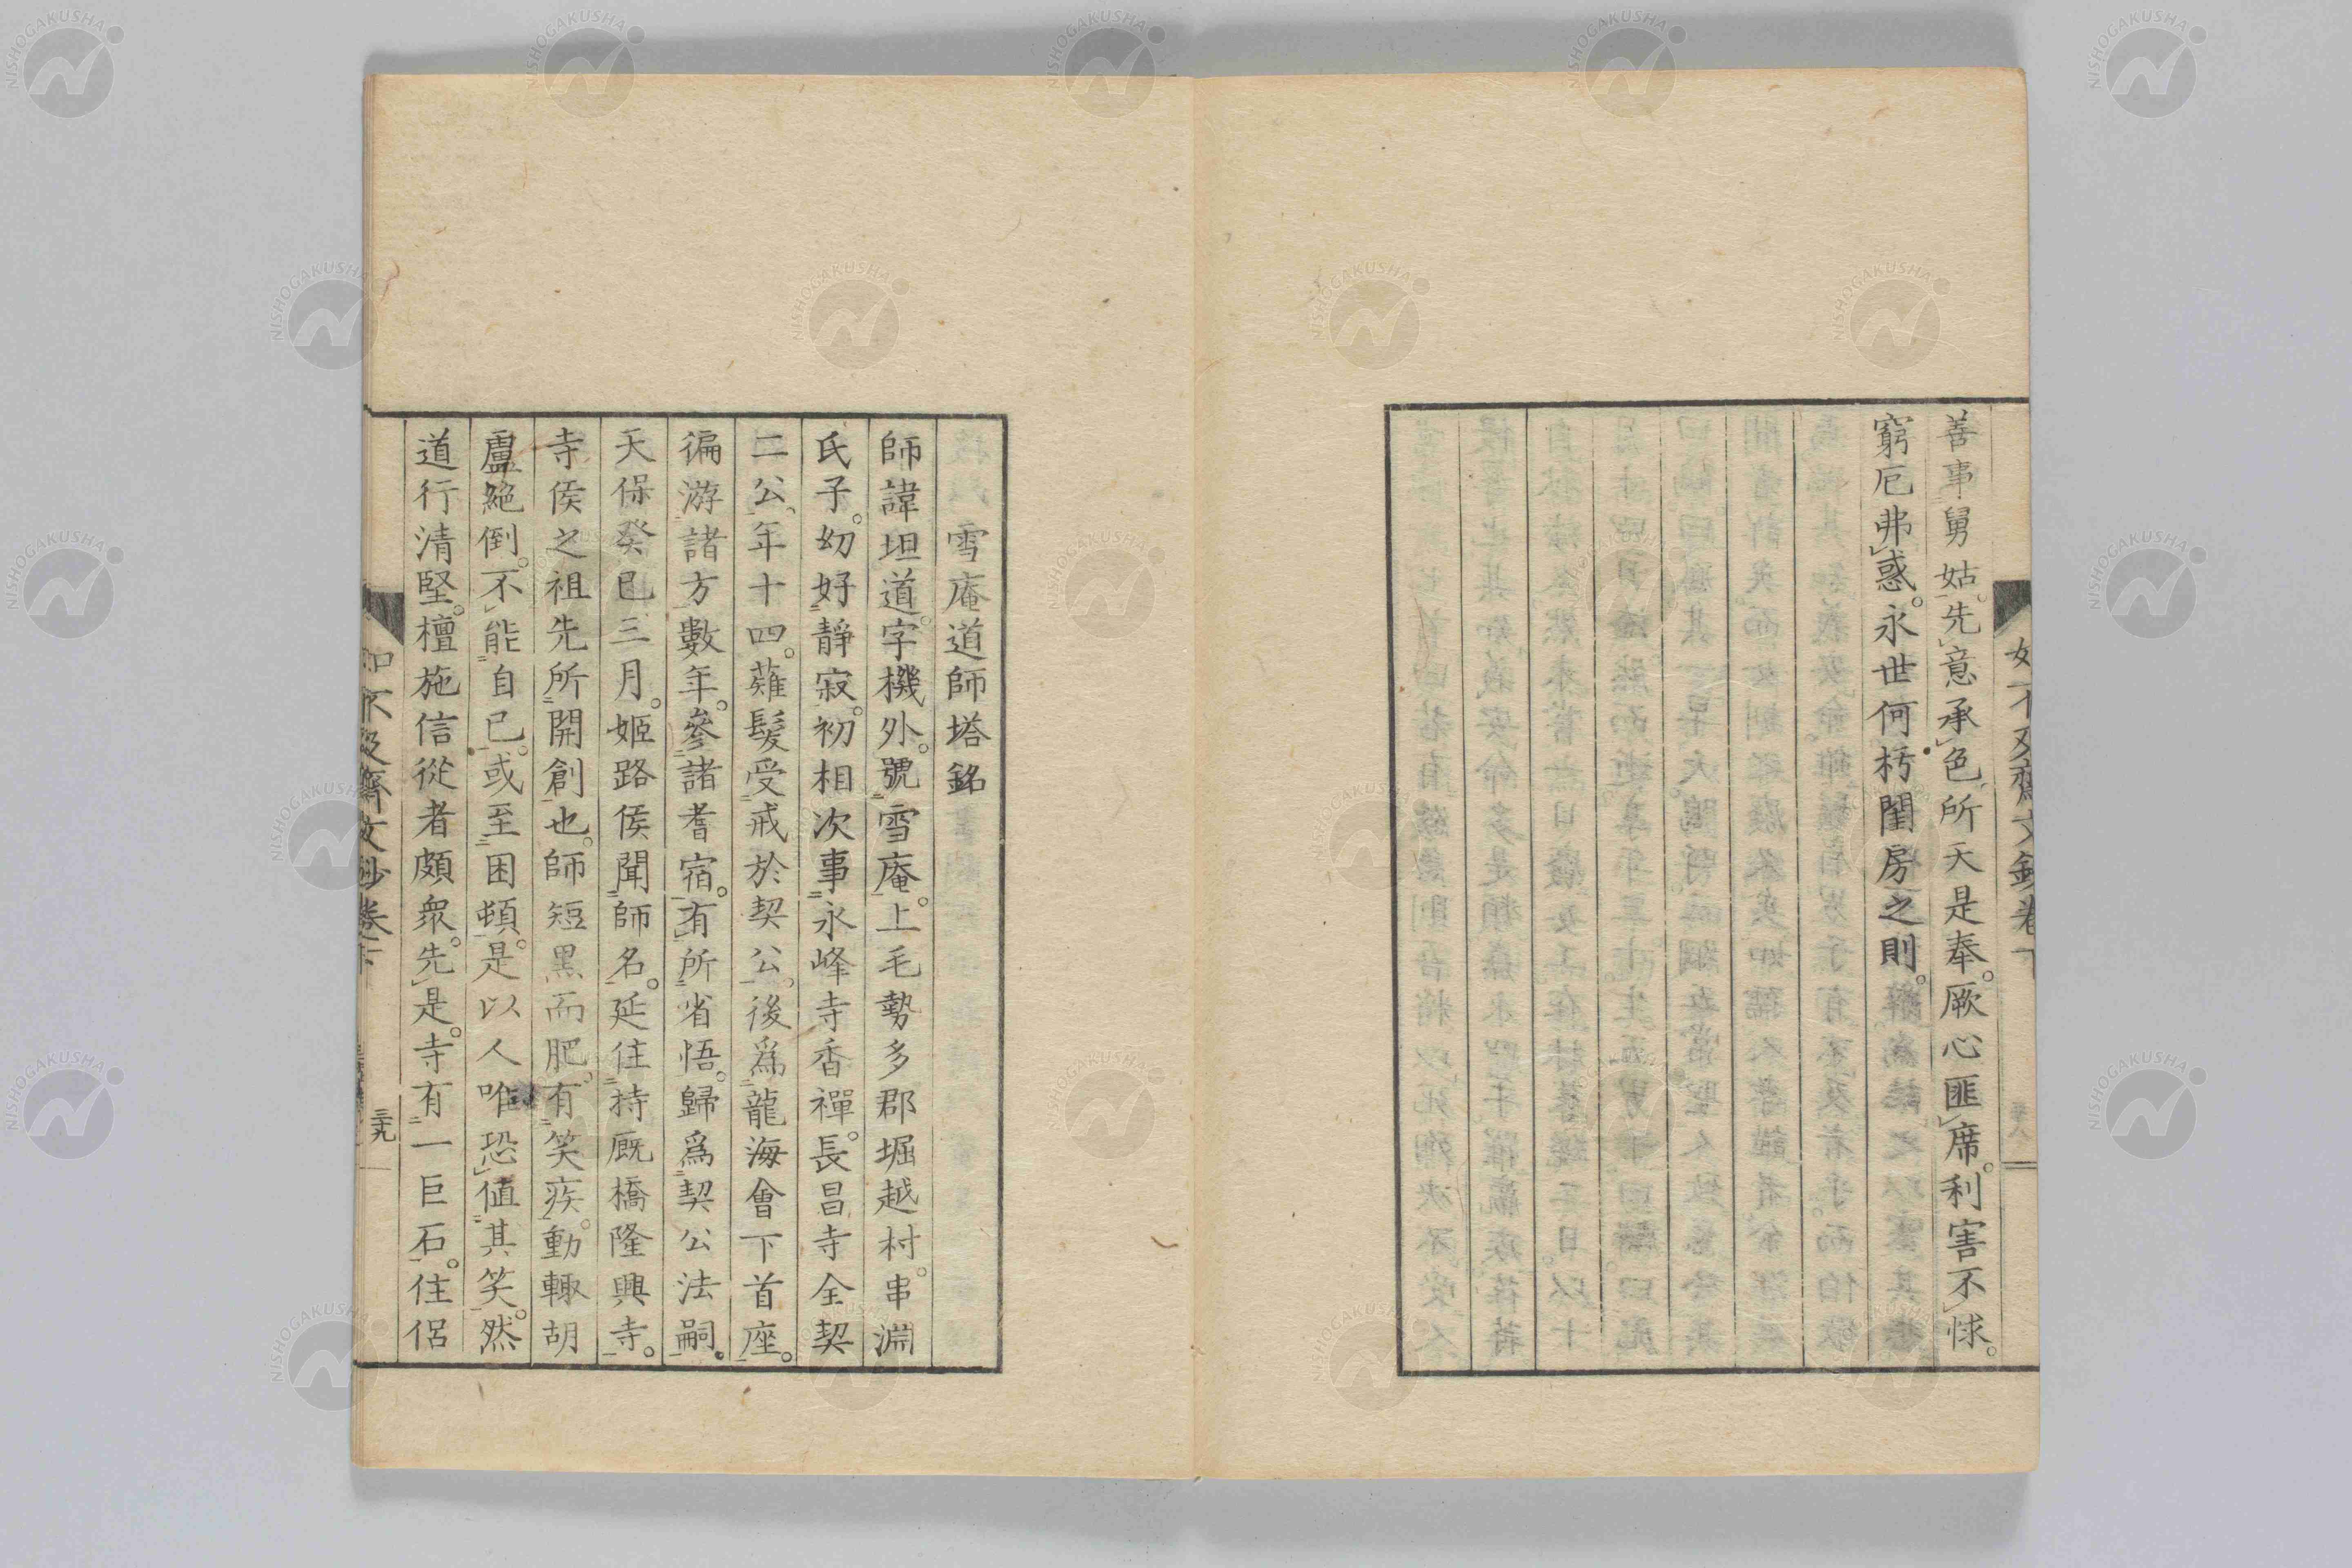 善事舅姑。先意承色。所天是奉。厥心匪席。利害不悚。
窮厄弗惑。永世何朽。閨房之則。
雪庵道師塔銘
師諱坦道。字機外。號雪庵。上毛勢多郡堀越村。串淵
氏子。幼好靜寂。初相次事永峰寺香禪。長昌寺全契
二公。年十四。薙髮受戒於契公。後爲龍海會下首座。
徧游諸方數年。參諸耆宿。有所省悟。歸爲契公法嗣。
天保癸巳三月。姬路侯聞師名。延住持厩橋隆興寺。
寺侯之祖先所開創也。師短黑而肥。有笑疾。動輙胡
盧絕倒。不能自已。或至困頓。是以人唯恐値其笑。然
道行清堅。檀施信從者頗衆。先是。寺有一巨石。住侶
如不及齋文鈔卷下
三十九
NISHOGAKUSHA